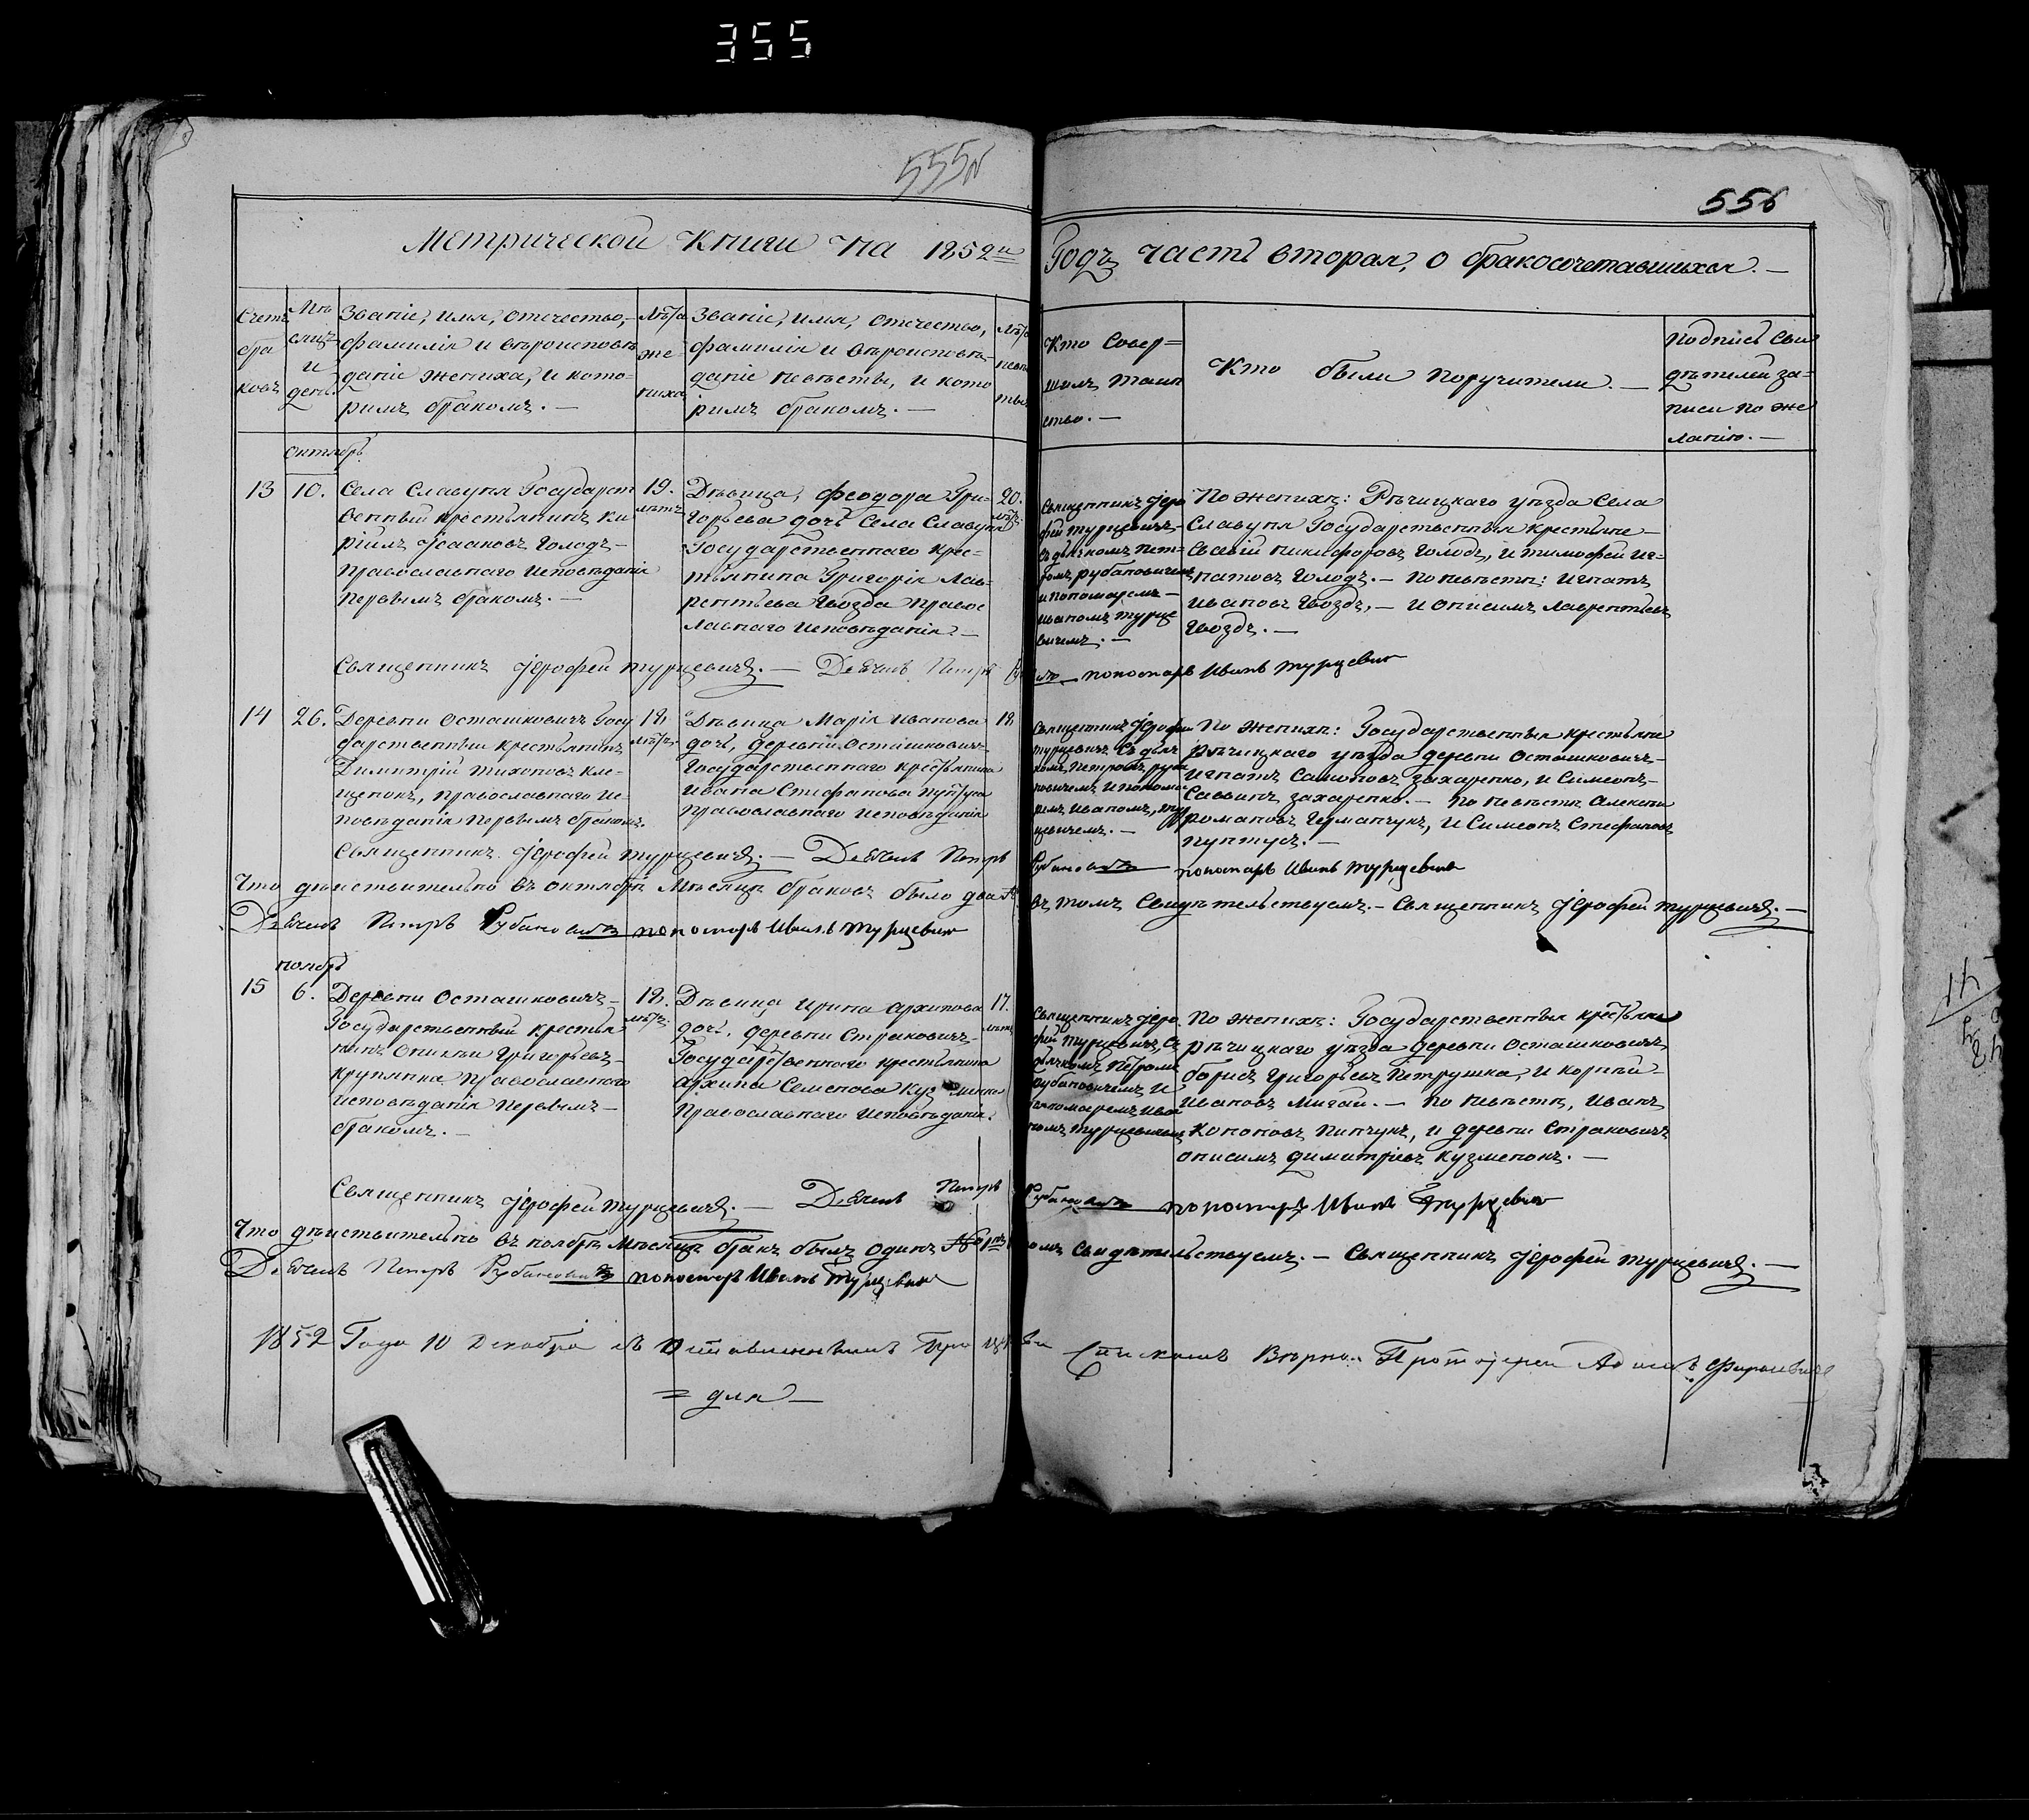 355
555
556
Метрической Книги На 1852й
Годъ часть вторая, о бракосочетавшихся. —
Счетъ бра ковъ
Мѣ сяцъ и день.
Званіе, имя, отечество,
фамилія и вѣроисповѣ
даніе жениха, и кото-
римъ бракомъ. —
Лѣта же ниха
Званіе, имя, отечество,
фамилія и вѣроисповѣ-
даніе невѣсты, и кото
римъ бракомъ. —
Лѣта невѣ сты
Кто совер=
шилъ таин
ство. —
Кто были поручители. —
подпись сви
дѣтелей за-
писи по же
ланію. —
октябрь
13
10.
Села Славуня Государст
венный крестьянинъ Ки
рiилъ Iсааковъ Голодъ —
Православнаго исповѣданія
первымъ бракомъ. —
19.
лѣтъ
Дѣвица, феодора Гри-
горьева дочь Села Славуня
Государственнаго крес-
тьянина Григорія Лав-
рентьева Гвозда Правос
лавнаго исповѣданія —
20.
лѣтъ
Священникъ Iеро
фей турцевичъ —
Съ дьячкомъ Пет-
ромъ рубановичемъ
и пономаремъ —
иваномъ турце
вичемъ. —
По женихѣ: Рѣчицкаго уѣзда Села
Славуня Государственныя крестьяне —
никифоровъ Голодъ, и тимофей иг-
натовъ Голодъ. — По невѣстѣ: игнатъ
ивановъ Гвоздъ, — и онисимъ лаврентьевъ
Гвоздъ. —
Священникъ Iерофей турцевичъ. — Дьячекъ Петръ
пономарь Иванъ турцевич
14
26.
Деревни Осташковичъ Госу
дарственный крестьянинъ
Димитрій тихоновъ Кле-
щенокъ, православнаго ис-
повѣданія первымъ бракомъ.
18.
лѣтъ.
Дѣвица Марія иванова
дочь, деревни Осташковичъ
Государственнаго крестьянина
ивана Стефанова пунтуса
православнаго исповѣданія
18
Священникъ Iерофей
турцевичъ Съ дьяч
комъ Петромъ руба
новичемъ и понома
ремъ иваномъ, тур
цевичемъ. —
По женихѣ: Государственныя крестьяне
рѣчицкаго уѣзда деревни Осташковичъ —
игнатъ Самоновъ захаренко, и Симеонъ —
Саввинъ захаренко. — По невѣстѣ Алексѣй
романовъ Германчукъ, и Симеонъ Стефановъ
пунтусъ. —
Священникъ Iерофей турцевичъ. — Дьячекъ Петръ
Рубановичъ пономарь Иванъ турцевичъ
Что дѣйствительно въ октябрѣ Мѣсяцѣ браковъ было два
въ томъ Свидѣтельствуемъ. — Священникъ Iерофей турцевичъ. —
Дьячекъ Петръ Рубановичъ пономарь Иванъ турцевич
ноябрь
15
6.
Деревни Осташковичъ —
Государственный крестья
нинъ Онисимъ Григорьевъ —
крупянка православнаго
исповѣданія первымъ —
бракомъ. —
18.
лѣтъ.
Дѣвица, ирина архипова
дочь, деревни Страковичъ —
Государственнаго крестьянина
архипа Семенова
Православнаго исповѣданія.
17.
лѣтъ
Священникъ Iеро
фей турцевичъ, Съ
дьячкомъ Петромъ
рубановичемъ и
пономаремъ ива
номъ турцевичемъ
По женихѣ: Государственныя крестьяне
рѣчицкаго уѣзда деревни Осташковичъ
борисъ Григорьевъ Петрушка, и корній —
ивановъ Мигай. — По невѣстѣ, иванъ
Кононовъ Пинчукъ, и деревни Страковичъ
онисимъ димитріевъ кузменокъ. —
Священникъ Iерофей турцевичъ. — Дьячекъ Петръ
Рубановичъ пономарь Иванъ турцевич
Что дѣйствительно въ ноябрѣ Мѣсяцѣ бракъ былъ одинъ
томъ Свидѣтельствуемъ. — Священникъ Iерофей турцевичъ. —
Дьячекъ Петръ Рубановичъ пономарь Иванъ турцевич
1852 Года 10 Декабря съ
Спискомъ Вѣрно. Протоіерей
= для —